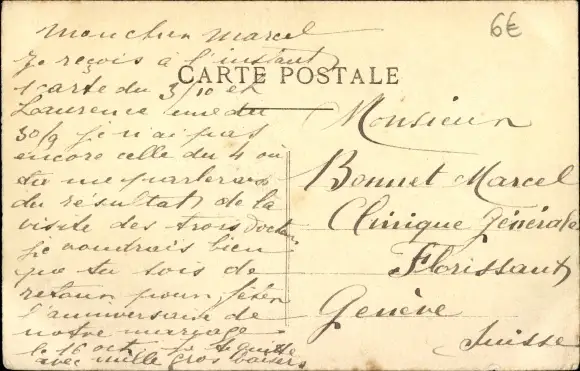 6€
CARTE POSTALE
Mon cher Marcel
Je reçois à l'instant
1 carte du 3/10 et
Laurence une du
30/9 je n'ai pas
encore celle du 4 où
tu me parleras
du résultat de la
visite des trois docteurs
je voudrais bien
que tu sois de
retour pour fêter
l'anniversaire de
notre mariage
le 16 oct. je te quitte
avec mille gros baisers
Monsieur
Bonnet Marcel
Clinique Générale
Florissant
Genève
Suisse